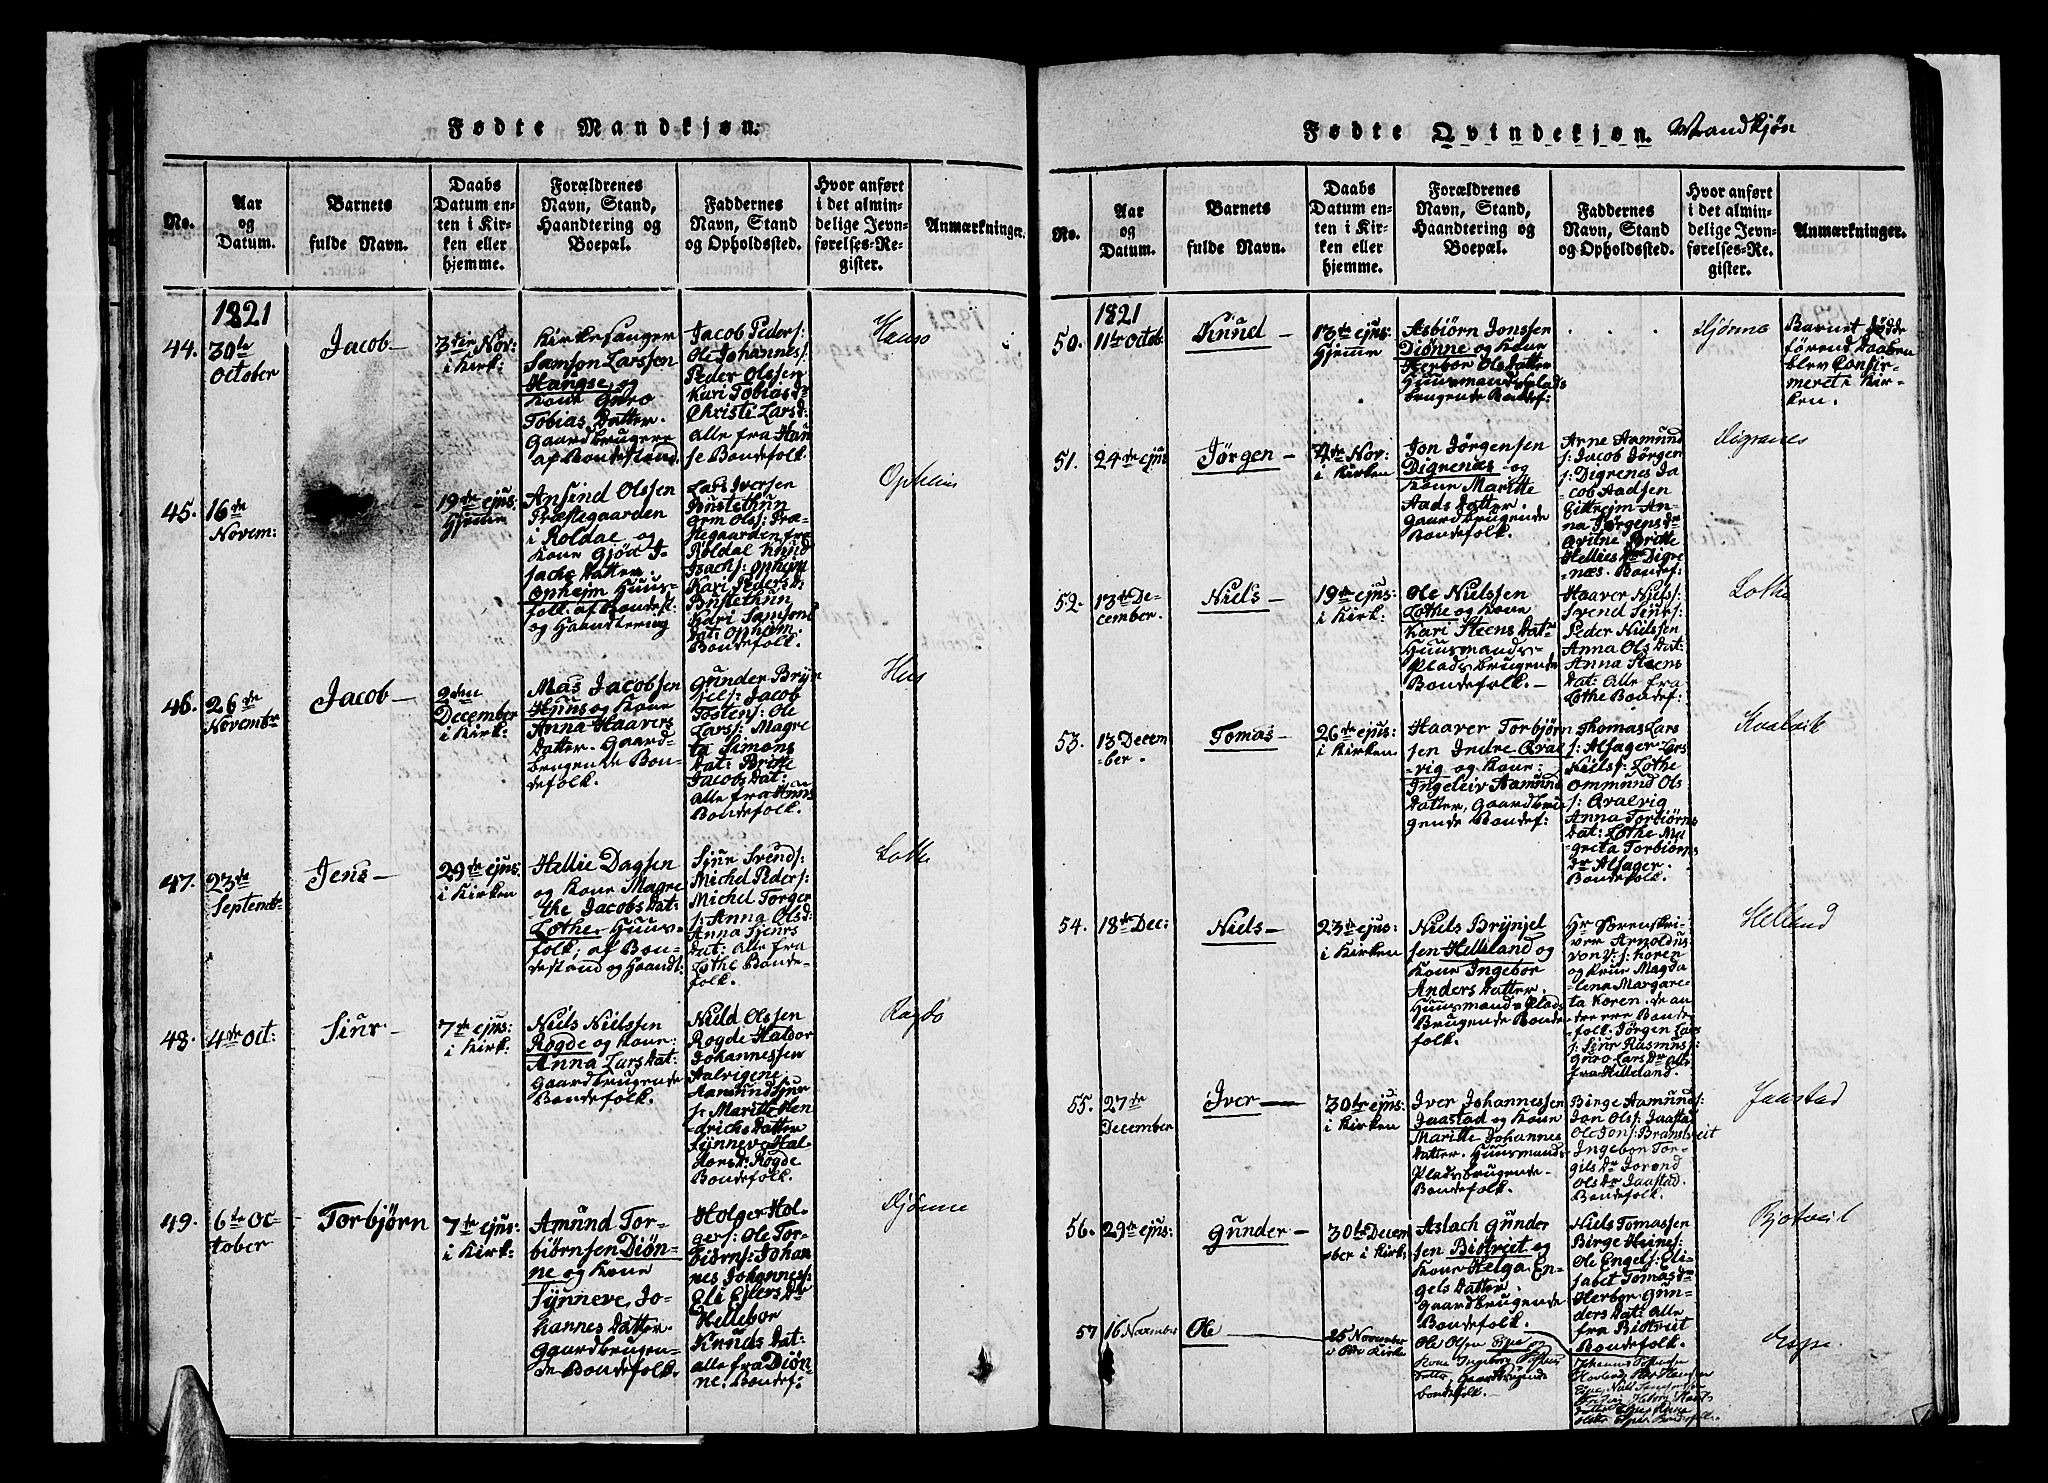 Fødte Mandkjøn.
No.
Aar
og
Datum.
Barnets
fulde Navn.
Daabs
Datum en-
ten i Kir-
ken eller
hjemme.
Forældrenes
Navn, Stand,
Haandtering og
Boepæl.
Faddernes
Navn, Stand
og Opholdssted.
Hvor anført
i det almin-
delige Jevn-
førelses-Re-
gister.
Anmærkninger.
1821
44.
30te
October
Jacob
3die Nov:
i Kirk:
Kirkesanger
Samson Larssen
Hangse og
Kone Guro
Tobias Datter.
Gaardbrugere
af Bondestand
Jacob Peders:
Ole Johannes:
Peder Olssen
Kari Tobias dr
Christi Larsd:
alle fra Han
se Bondefolk.
45.
16de
Novem:
19de ejus:
Hjemme
Ansind Olssen
Præstegaarden
i Roldal og
Kone Gjød I-
sachs Datter.
Opheim Huus-
folk af Bondest.
og Haandtering
Lars Iversen
Bustethun
Orm Ols: Præ-
stegaarden fra
Røldal Knud
Isachs: Opheim
Kari Peders D:
Bustethun
Kari Samsons
Dat: Ophæm.
Bondefolk.
Opheim
46.
26de
Novembr
Jacob
2den
December
i Kirk:
Mas Jacobsen
Huus og Kone
Anna Haavers
Datter. Gaard-
brugende Bon-
defolk.
Gunder Bryn
jels: Jacob
Tostens: Ole
Lars: Magre
ta Simons
Dat: Britte
Jacobs Dat:
Alle fra Huus
Bondefolk.
Huus
47.
23de
Septembr
Jens
29de ejus:
i Kirken
Hellie Dagsen
og Kone Magre
the Jacobs Dat:
Lothe. Huus-
folk; af Bon-
destand og Haandt:
Siur Svends:
Michel Peders:
Michel Torger
s: Anna Olsd:
Anna Siurs
Dat: Alle fra
Lothe Bonde-
folk.
Lothe
48.
4de Oct:
Siur
7de ejus:
i Kirk:
Niels Nielssen
Rogde og Kone
Anna Lars Dat:
Gaardbrugende
Bondefolk.
Nield Olssen
Rogde Haldor
Johannessen
Aalvigene
Aamund Siur
s: Maritte Hen
drichs Datter
Synneve Hal-
dors D: Rogde
Bondefolk.
Ragde
49.
6te Oc-
tober
Torbjørn
7de ejus:
i Kirk:
Amund Tor-
biørnsen Diøn-
ne og Kone
Synneve Jo-
hannes Datter.
Gaardbrugen-
de Bondefolk.
Holger Hol-
gers: Ole Tor-
biørns: Johan
nes Johannes:
Eli Ejlers Dr
Hellebor
Knuds Dat:
alle fra Diøn
ne. Bondef:
Djønne
Fødte Qvindekjøn. Mandkjøn
No.
Aar
og
Datum.
Barnets
fulde Navn.
Daabs
Datum en-
ten i Kir-
ken eller
hjemme.
Forældrenes
Navn, Stand,
Haandtering og
Boepæl.
Faddernes
Navn, Stand
og Opholdssted.
Hvor anført
i det almin-
delige Jevn-
førelses-Re-
gister.
Anmærkninger.
1821
50.
11te Octob:
Knud
13de ejus:
Hjemme
Asbiørn Jonssen
Diønne og Kone
Herbor Ols Datter
Huusmands Plads
brugende Bondef:
Barnet døde
førend Daaben
blev Confir-
meret i Kir-
ken.
51.
24de ejus
Jørgen
4de Nov:
i Kirken
Jon Jørgensen
Digrenæs og
Kone Maritte
Aads Datter.
Gaardbrugende
Bondefolk.
Arne Aamund
s: Jacob Jørgen
s: Digrenes Ja
cob Aadsen
Eittrejm An-
na Jørgens dr
Britte
Hellies Dr Digre-
næs. Bondef:
Digranes
52.
13de De-
cember.
Niels
19de ejus:
i Kirk:
Ole Nielssen
Lothe og Kone
Kari Steens Dat:
Huusmands-
Plads brugende
Bondefolk.
Haaver Niels:
Svend Siurs:
Peder Nielssen
Anna Ols Dat:
Anna Steens
Dat: Alle fra
Lothe Bondef:
Lothe
53.
13 Decem
ber.
Tomas
26de ejus:
i Kirken
Haaver Torbjørn
sen Indre Qval
vig og Kone:
Ingeleiv Aamund
Datter, Gaardbru
gende Bondef:
Thomas Lars
s: Alsager Lars
Niels: Lothe
Ommund Ols
s: Qvalvig
Anna Torbiørns
Dat: Lothe Ma
greta Torbiørns
dr Alsager.
Bondefolk.
Kvalvik
54.
18de Dec:
Niels
23de ejus:
i Kirken
Niels Brynjel
sen Helleland og
Kone Ingebor
Anders Datter.
Huusmands Plads
Brugende Bonde-
folk.
Hr Sorenskri-
ver Arnoldus
von V: s: Koren
og Frue Magda
lena Margare-
ta Koren. de an
dre ere Bonde-
folk. Jørgen Lars
s: Siur Rasmus:
Guro Lars Dr Alle
fra Helleland.
Helland
55.
27de
December
Iver
30te ejus:
i Kirken
Iver Johannessen
Jaastad og Kone
Maritte Johannes
Datter. Huusmands-
Plads brugende
Bondefolk.
Birge Aamunds:
Jon Ols: Jaastad
Ole Jons: Branstveit
Ingebor Tor-
gils Dr Jorond
Ols Dr Jaastad.
Bondefolk.
Jaastad
56.
29de ejus:
Gunder
30te Decem
ber i Kirk:
Aslach Gunder
sen Biotveit og
Kone Helga En-
gels Datter.
Gaardbrugende
Bondefolk.
Niels Tomassen
Birge Heines:
Ole Engels: Eli-
sabet Tomas Dr
Herbor Gun-
ders Dat: Alle
fra Biotveit
Bondefolk.
Bjotveit
57
16 November
Ole
25 November
Kirke
Ole Olsen Espe og
Kone Ingeborg
Datter, Gaardbrugende
Bondefolk.
Espe